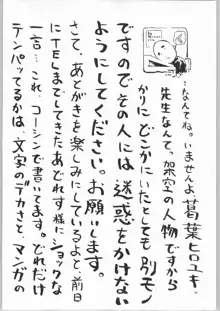 …なんてね。いませんよ葛葉ヒロユキ。
先生なんて。架空の人物ですから
かりにどこかにいたとしても別モノ
ですのでその人には迷惑をかけない
ようにしてください。お願いします。
さて、あとがきを楽しみにしているよと、前日
にTELまでしてきたあどれす様にショックな
一言…これ、コーシンで書いてます。どれだけ
テンパッてるかは、文字のデカさと、マンガの